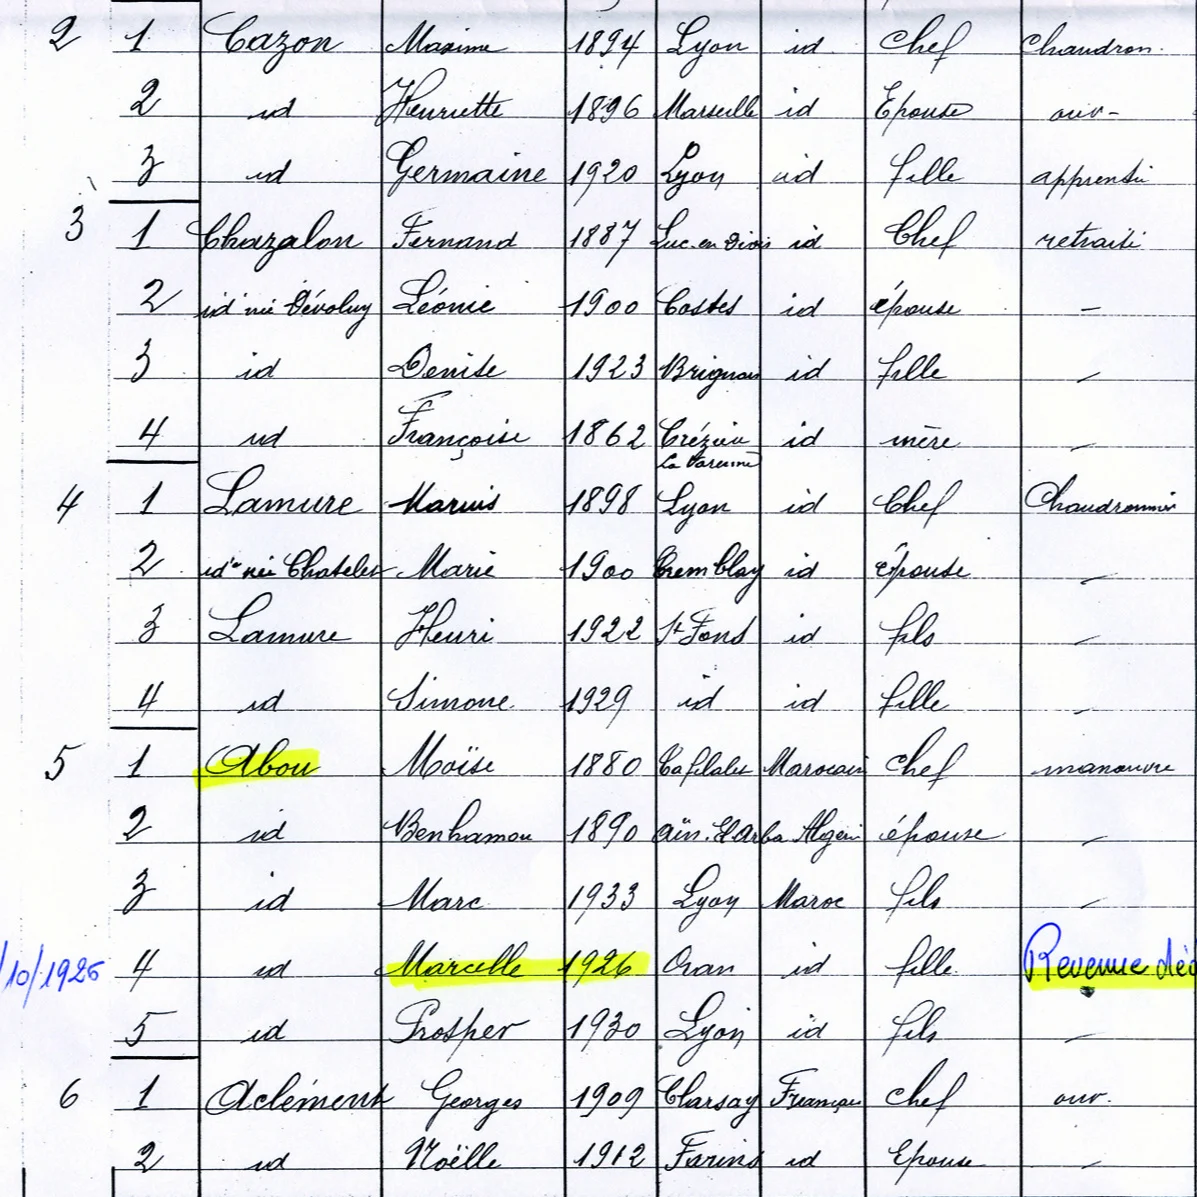 2 1 Cazon Maxime 1894 Lyon id Chef Chaudron.
2 id Henriette 1896 Marseille id Epouse ouv-
3 id Germaine 1920 Lyon id fille apprenti
3 1 Chazalon Fernand 1887 Luc-en-Diois id Chef retraité
2 id née Dévoluy Léonie 1900 Costes id épouse –
3 id Denise 1923 Brignais id fille –
4 id Françoise 1862 Crézieu id mère –
La Varenne
4 1 Lamure Marius 1898 Lyon id Chef Chaudronnier
2 id née Chatelet Marie 1900 Tremblay id épouse –
3 Lamure Henri 1922 St Fons id fils –
4 id Simone 1929 id id fille –
5 1 Abou Moïse 1880 Tafilalet Marocain chef manœuvre
2 id Benhamou 1890 Aïn-El-Arba Algérie épouse –
3 id Marc 1933 Lyon Maroc fils –
/10/1926 4 id Marcelle 1926 Oran id fille Revenue dé
5 id Prosper 1930 Lyon id fils –
6 1 Aclément Georges 1909 Charsay Français chef ouv.
2 id Noëlle 1912 Farins id Epouse –